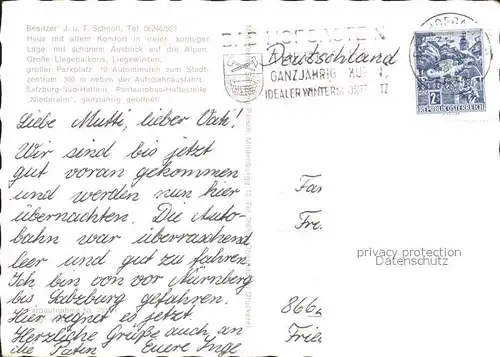 Besitzer J. u. T. Schnöll, Tel. 06246/583
Haus mit allem Komfort in freier sonniger
Lage, mit schönem Ausblick auf die Alpen.
Große Liegebalkons, Liegewiesen,
großer Parkplatz. 10 Autominuten zum Stadt-
zentrum. 300 m neben der Autobahnausfahrt
Salzburg-Süd-Hallein. Postautobus-Haltestelle
„Niederalm", ganzjährig geöffnet.
BAD HOFGASTEIN
GANZJÄHRIG KUR
IDEALER WINTERSPORTPLATZ
2 S
REPUBLIK ÖSTERREICH
Deutschland
Liebe Mutti, lieber Vati!
Wir sind bis jetzt
gut voran gekommen
und werden nun hier
übernachten. Die Auto-
bahn war überraschend
leer und gut zu fahren.
Ich bin von vor Nürnberg
bis Salzburg gefahren.
Hier regnet es jetzt.
Herzliche Grüße auch an
die Paten Eure Inge
Farbaufnahme Nr.
Fa
Fr
866
Frie
privacy protection
Datenschutz